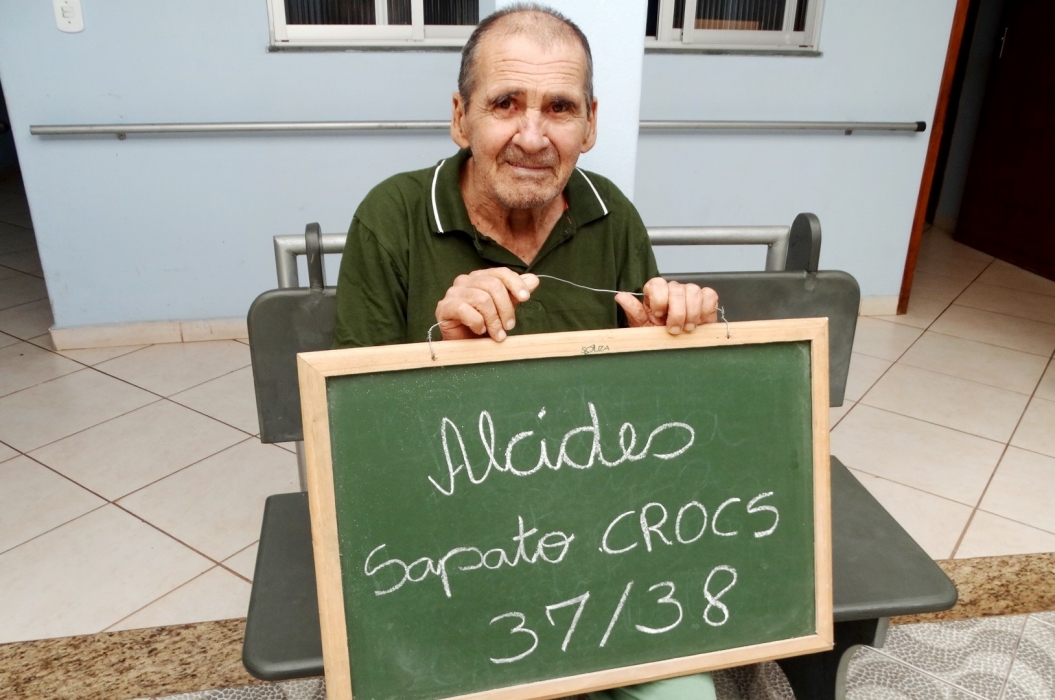 Alcides
Sapato CROCS
37/38